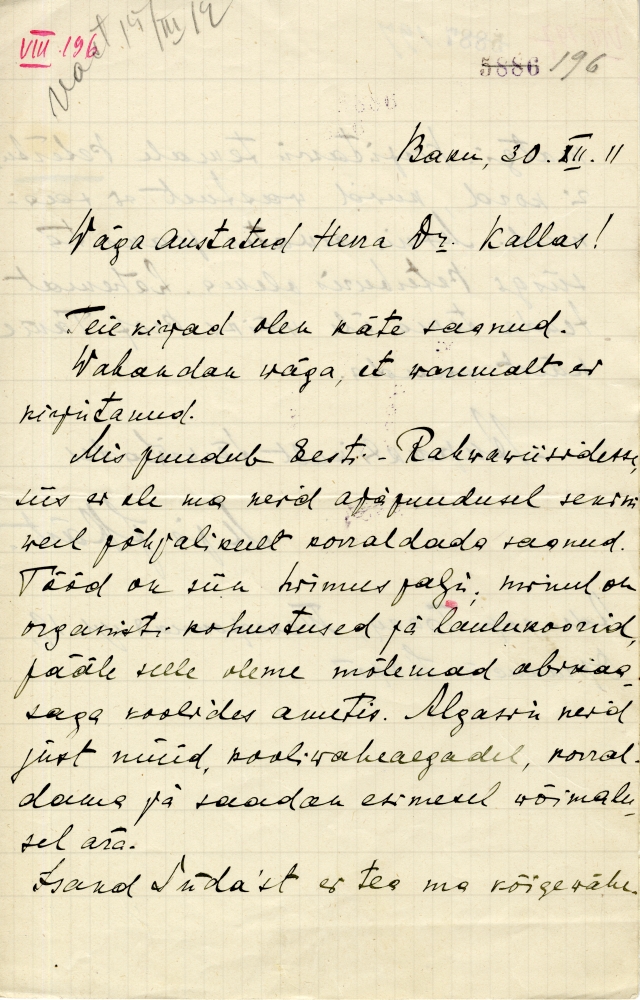 VIII 196
vast. 15/III 12
5886 196
Baku, 30. XII. 11
Wäga austatud Herra Dr. Kallas!
Teie kirjad olen käte saanud.
Wabandan wäga, et waremalt ei
kirjutanud.
Mis puudub Eesti-Rahwawiisidesse,
siis ei ole ma neid ajapuudusel senini
weel põhjalikult korraldada saanud.
Tööd on siin hirmus palju, minul on
organisti-kohustused ja laulukoorid,
pääle selle oleme mõlemad abikaa-
saga koolides ametis. Algasin neid
just nüüd, kooliwaheaegadel, korral-
dama ja saadan esimesel wõimalu-
sel ära.
Isand Süda'st ei tea ma kõigewähe-